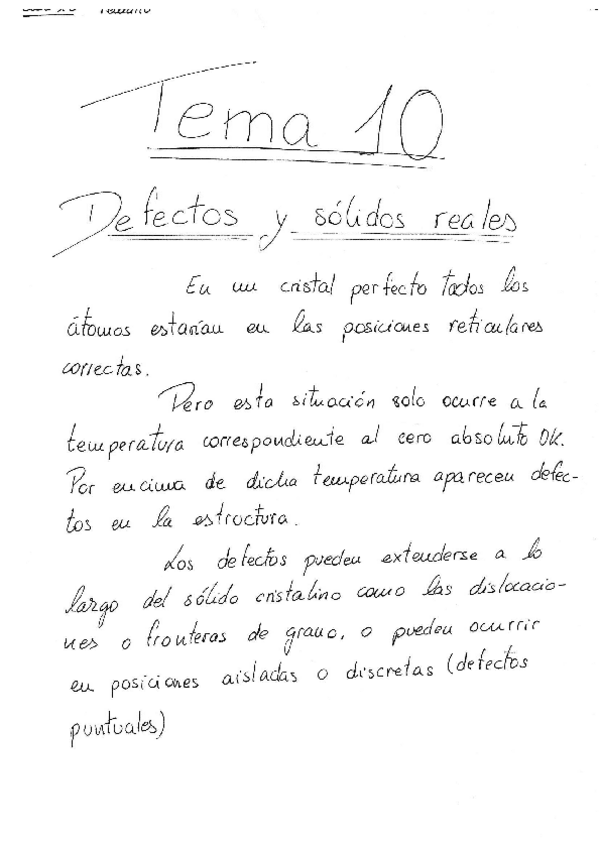 Tema 10
Defectos y sólidos reales
En un cristal perfecto todos los
átomos estarían en las posiciones reticulares
correctas.
Pero esta situación solo ocurre a la
temperatura correspondiente al cero absoluto 0K.
Por encima de dicha temperatura aparecen defec-
tos en la estructura.
Los defectos pueden extenderse a lo
largo del sólido cristalino como las dislocacio-
nes o fronteras de grano, o pueden ocurrir
en posiciones aisladas o discretas (defectos
puntuales)